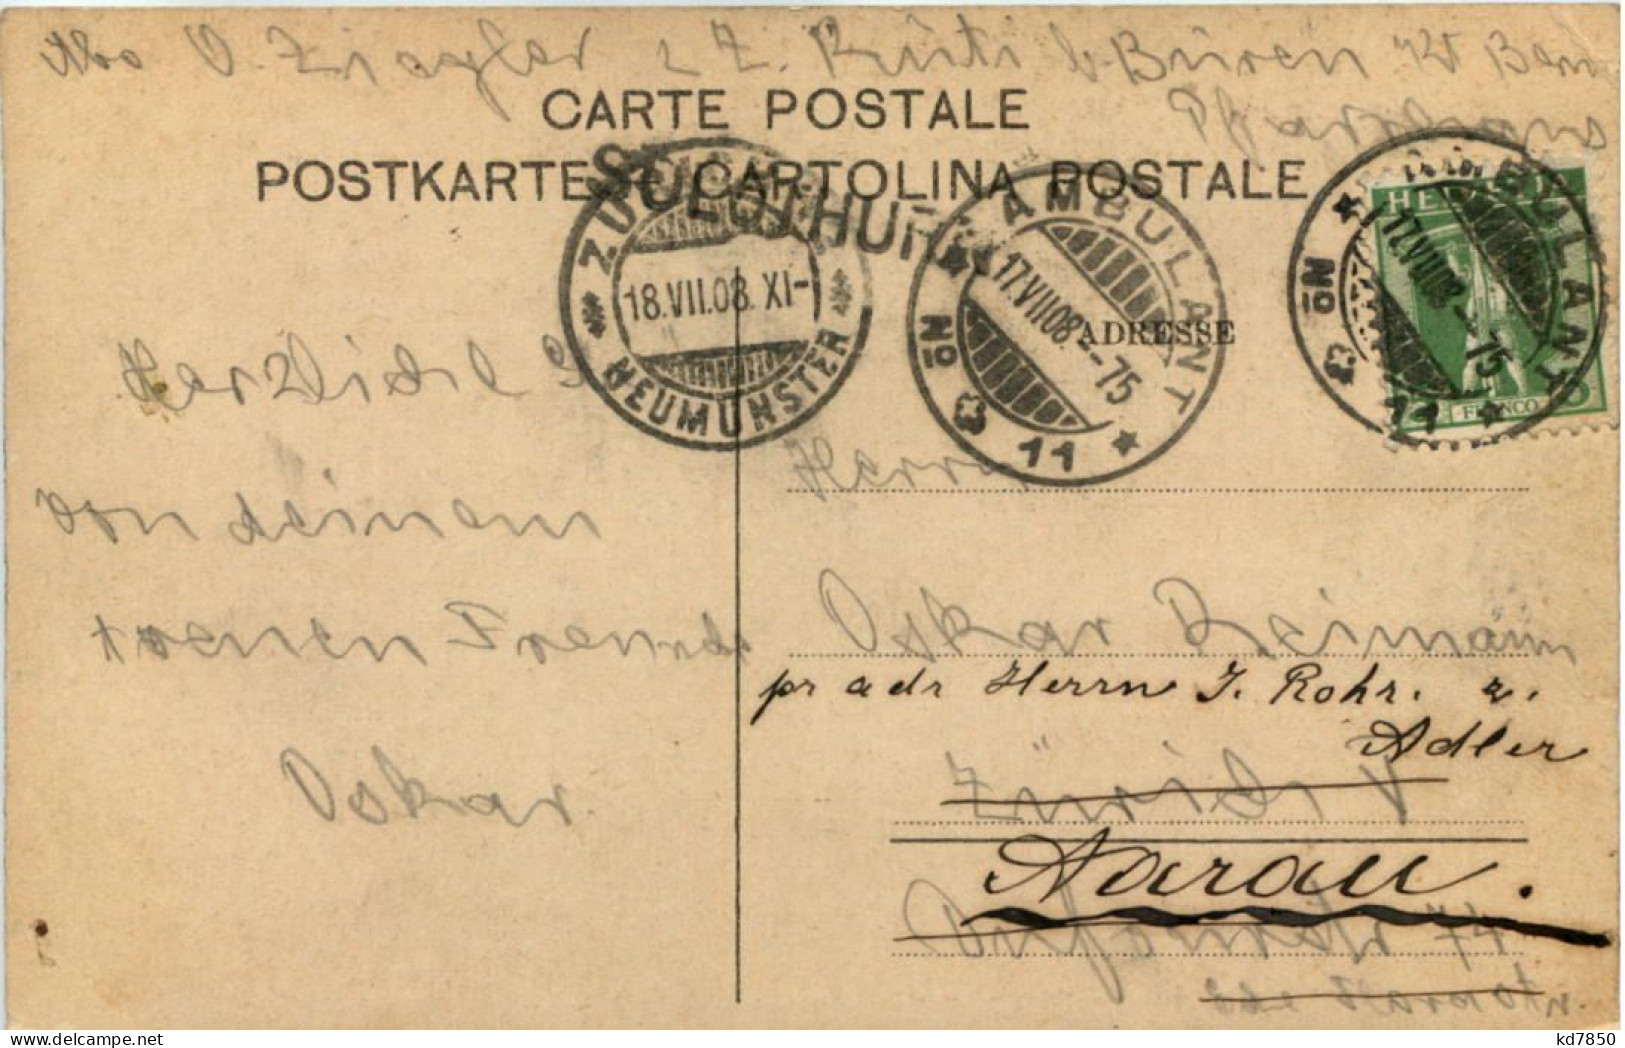 O. Ziegler z Z. Rüti b. Büren Kt Bern
Pfarrhaus
CARTE POSTALE
POSTKARTE — CARTOLINA POSTALE
SOLOTHURN
ZÜRICH
18.VII.08. XI-
NEUMÜNSTER
AMBULANT
17.VII.08 - 75
No 11
AMBULANT
17.VII.08 - 75
No 11
HELVETIA
FRANCO
ADRESSE
Herzliche
von deinem
treuen Freunde
Oskar.
Herrn
Oskar Reimann
pr adr Herrn J. Rohr. z.
Adler
Zürich V
Aarau.
47
kd7850